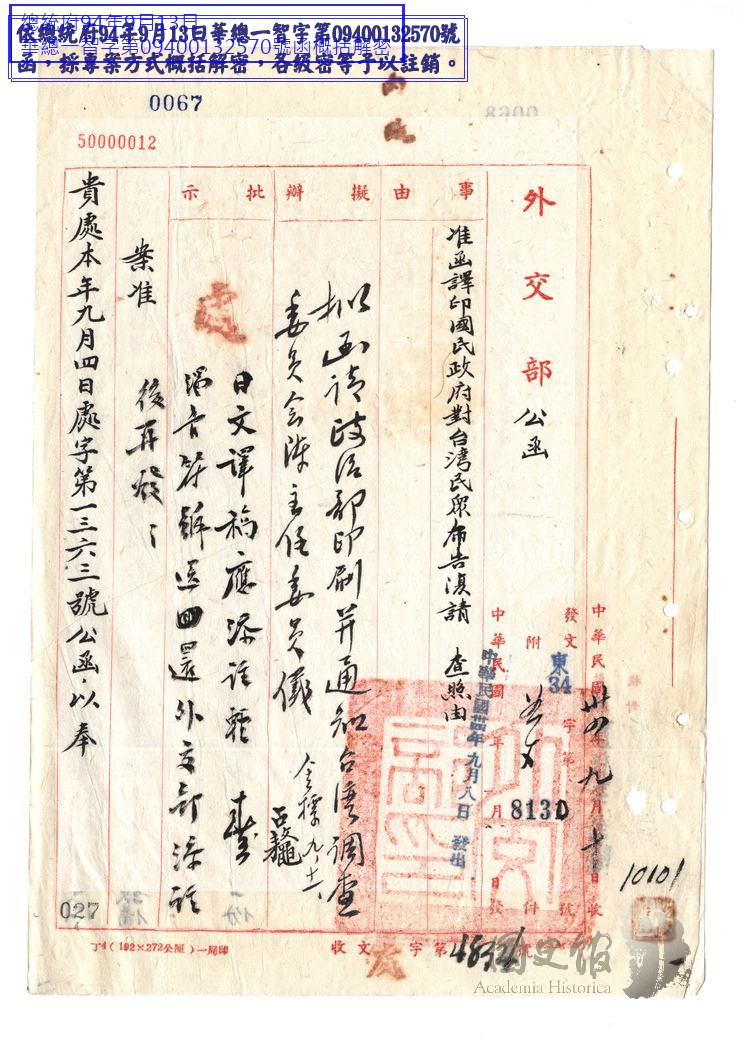 總統府94年9月13日
華總一智字第09400132570號函概括解密
依總統府94年9月13日華總一智字第09400132570號
函，採專案方式概括解密，各級密等予以註銷。
0067
50000012
外交部 公函
事由
擬辦
批示
准函譯印國民政府對台湾民眾布告復請
查照由
中華民國卅四年九月十日收
發文
東34
字第
8130
號
附
件
中華民國 年 月 日發
中華民國卅四年九月八日發出
擬函請政治部印刷并通知台湾調查
委員會陳主任委員儀
日文譯稿應添註
送回還外交部添註
後再發
案准
貴處本年九月四日處字第一三六三號公函，以奉
10101
027
丁4（192×272公厘）一局印
收文 字第 號
國史館
Academia Historica